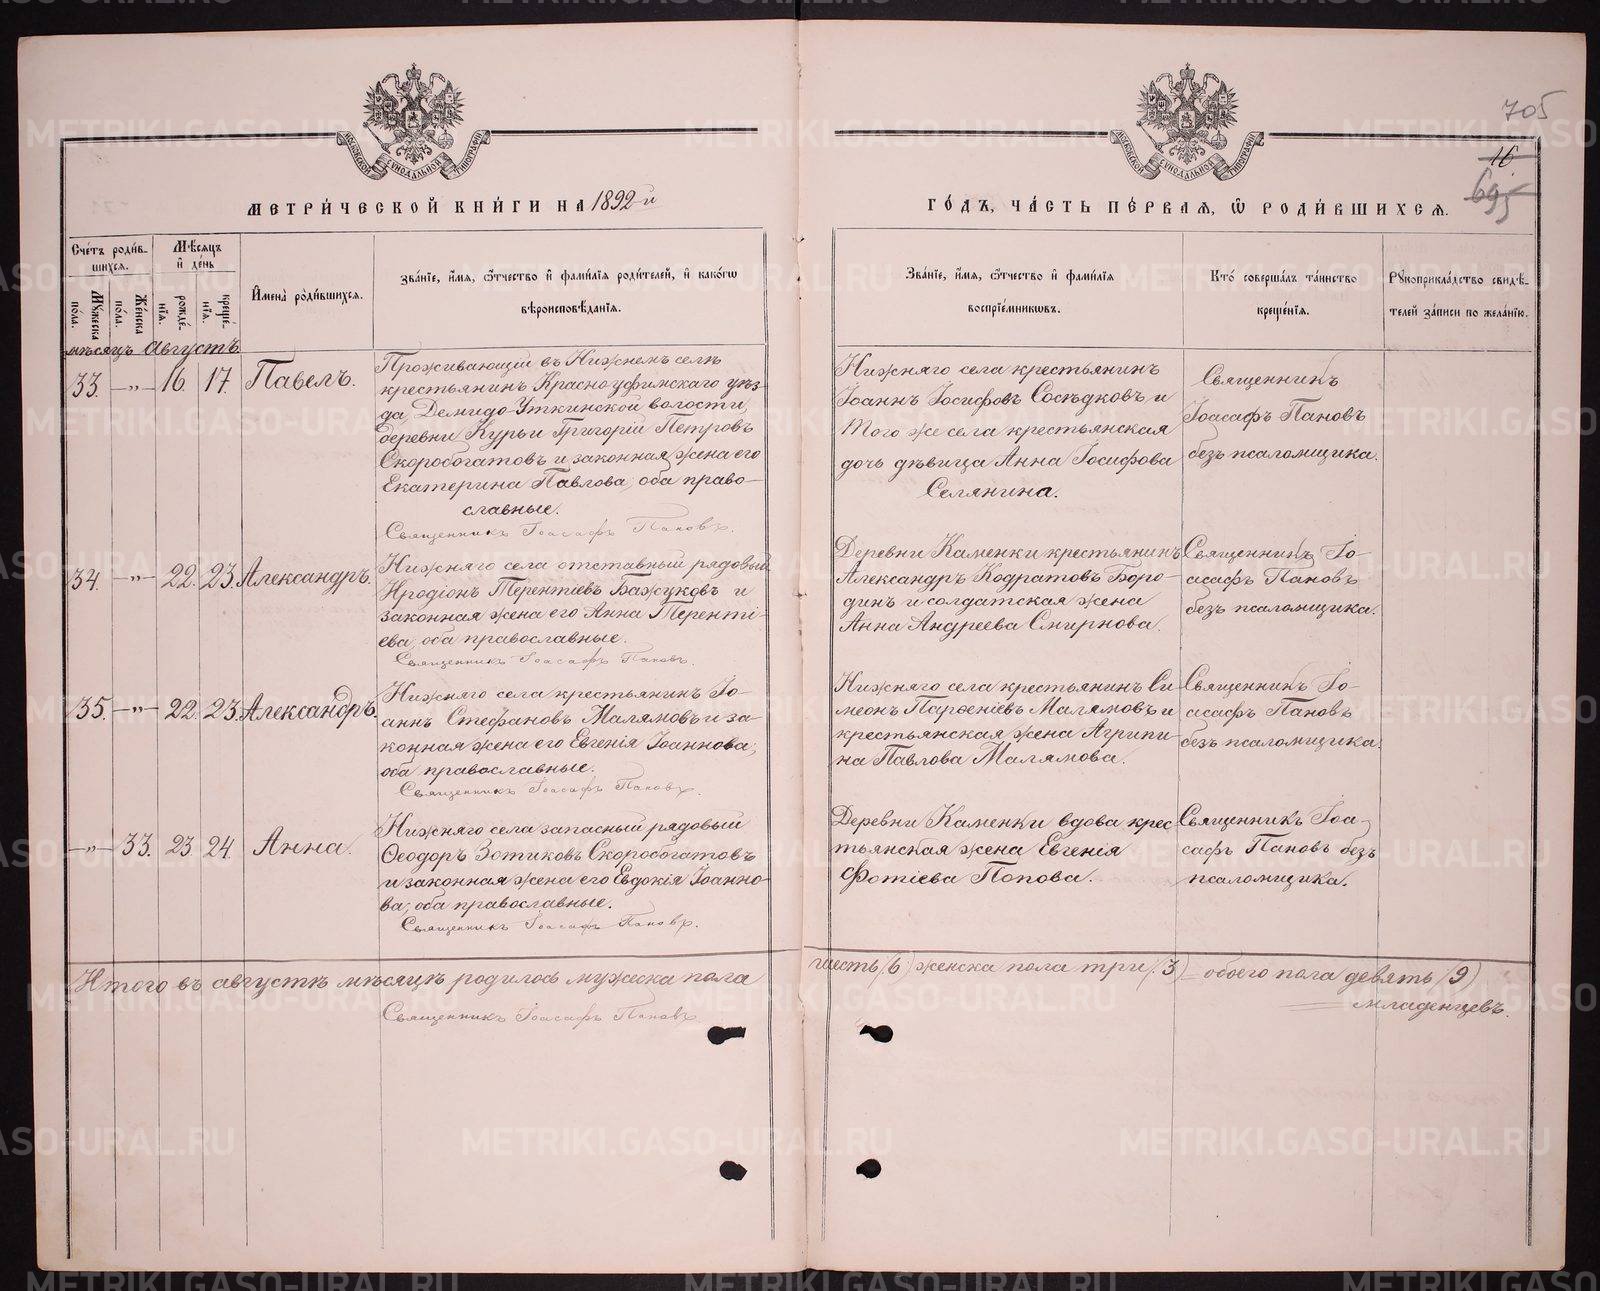 705
16
695
МЕТРИ́ЧЕСКОЙ КНИ́ГИ НА 1892-й
ГО́ДЪ, ЧА́СТЬ ПЕ́РВАЯ, Ѡ РОДИ́ВШИХСЯ.
Сче́тъ роди́в-
шихся.
Мꙋжеска
по́ла.
Же́нска
по́ла.
Мѣ́сяцъ
и҆ де́нь
рожде́-
нїя.
креще́-
нїя.
И҆мена̀ роди́вшихся.
Зва́нїе, и҆́мя, ѻ҆́тчество и҆ фами́лїя роди́телей, и҆ како́гѡ
вѣроисповѣ́данїя.
Зва́нїе, и҆́мя, ѻ҆́тчество и҆ фами́лїя
воспрїе́мникѡвъ.
Кто̀ соверша́лъ та́инство
креще́нїя.
Рꙋкоприкла́дство свидѣ́-
телей за́писи по жела́нїю.
мѣсяцъ Августъ
33. —„— 16. 17. Павелъ.
Проживающій въ Нижнемъ селѣ
крестьянинъ Красноуфимскаго уѣз-
да, Демидо-Уткинской волости,
деревни Курьи Григорій Петровъ
Скоробогатовъ и законная жена его
Екатерина Павлова, оба право-
славные.
Священникъ Іоасафъ Пановъ.
Нижняго села крестьянинъ
Іоаннъ Іосифовъ Сосѣдковъ и
того же села крестьянская
дочь дѣвица Анна Іосифова
Селянина.
Священникъ
Іоасафъ Пановъ
безъ псаломщика.
34. —„— 22. 23. Александръ.
Нижняго села отставный рядовый
Иродіонъ Терентіевъ Бажуковъ и
законная жена его Анна Теренті-
ева, оба православные.
Священникъ Іоасафъ Пановъ.
Деревни Каменки крестьянинъ
Александръ Кодратовъ Боро-
динъ и солдатская жена
Анна Андреева Смирнова.
Священникъ Іо-
асафъ Пановъ
безъ псаломщика.
35. —„— 22. 23. Александръ.
Нижняго села крестьянинъ Іо-
аннъ Стефановъ Малямовъ и за-
конная жена его Евгенія Іоаннова,
оба православные.
Священникъ Іоасафъ Пановъ.
Нижняго села крестьянинъ Си-
меонъ Парѳеніевъ Малямовъ и
крестьянская жена Агрипи-
на Павлова Малямова.
Священникъ Іо-
асафъ Пановъ
безъ псаломщика.
—„— 33. 23 24. Анна.
Нижняго села запасный рядовый
Ѳеодоръ Зотиковъ Скоробогатовъ
и законная жена его Евдокія Іоанно-
ва, оба православные.
Священникъ Іоасафъ Пановъ.
Деревни Каменки вдова крес
тьянская жена Евгенія
Фотіева Попова.
Священникъ Іоа-
сафъ Пановъ безъ
псаломщика.
Итого въ августѣ мѣсяцѣ родилось мужеска пола
шесть (6) женска пола три (3) — обоего пола девять (9)
младенцевъ.
Священникъ Іоасафъ Пановъ
METRIKI.GASO-URAL.RU